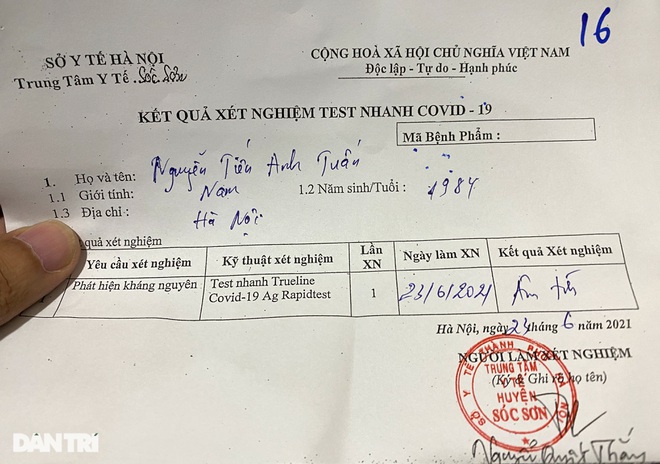 16
SỞ Y TẾ HÀ NỘI
Trung Tâm Y Tế . Sóc Sơn
CỘNG HOÀ XÃ HỘI CHỦ NGHĨA VIỆT NAM
Độc lập - Tự do - Hạnh phúc
KẾT QUẢ XÉT NGHIỆM TEST NHANH COVID - 19
Mã Bệnh Phẩm :
1. Họ và tên: Nguyễn Tiến Anh Tuấn
1.1 Giới tính: Nam 1.2 Năm sinh/Tuổi : 1984
1.3 Địa chỉ : Hà Nội
quả xét nghiệm
Yêu cầu xét nghiệm Kỹ thuật xét nghiệm Lần XN Ngày làm XN Kết quả Xét nghiệm
Phát hiện kháng nguyên Test nhanh Trueline Covid-19 Ag Rapidtest 1 23/6/2021 Âm tính
Hà Nội, ngày 23 tháng 6 năm 2021
NGƯỜI LÀM XÉT NGHIỆM
(Ký & Ghi rõ họ tên)
SỞ Y TẾ THÀNH PHỐ HÀ NỘI
TRUNG TÂM
Y TẾ
HUYỆN
SÓC SƠN
Nguyễn Thắng
DÂN TRÍ